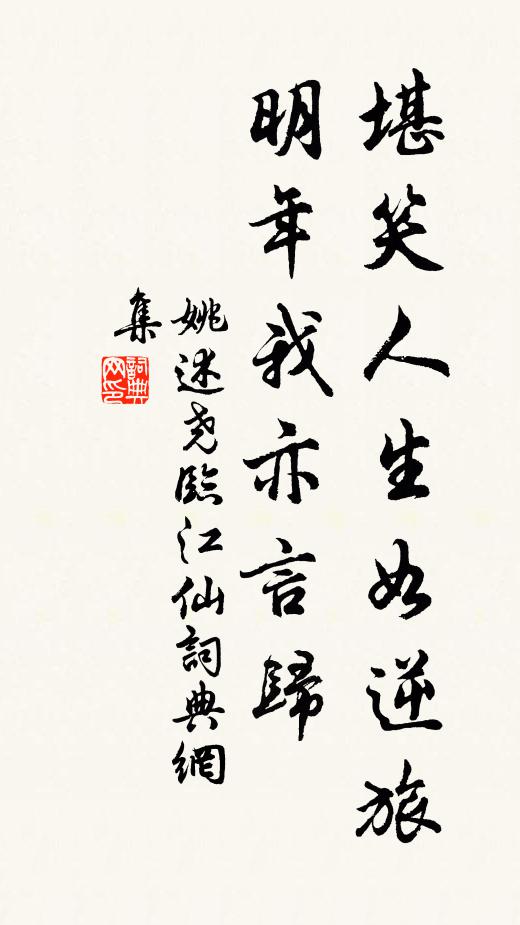 堪笑人生如逆旅
明年我亦言歸
姚述堯臨江仙詞典網
集
詞典
网印